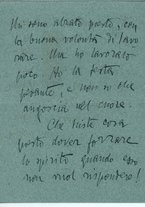 Mi sono alzato presto, con
la buona volontà di lavo
rare. Ma ho lavorato
poco. Ho la testa
pesante, e non so che
angoscia nel cuore.
Che triste cosa
questo dover forzare
lo spirito quando esso
non vuol rispondere!